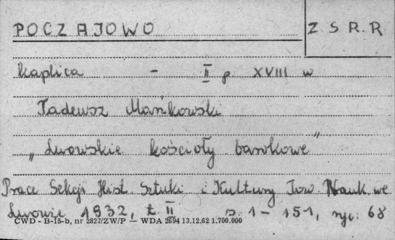 POCZAJOWO
Z. S. R. R.
Kaplica - II p XVIII w
Tadeusz Mańkowski
„Lwowskie kościoły barokowe"
Prace Sekcji Hist. Sztuki i Kultury Tow. Nauk. we
Lwowie 1932, t. II s. 1-151, ryc. 68
CWD - B-15-b, nr 2827/ZW/P — WDA 2694 13.12.62 1.700.000